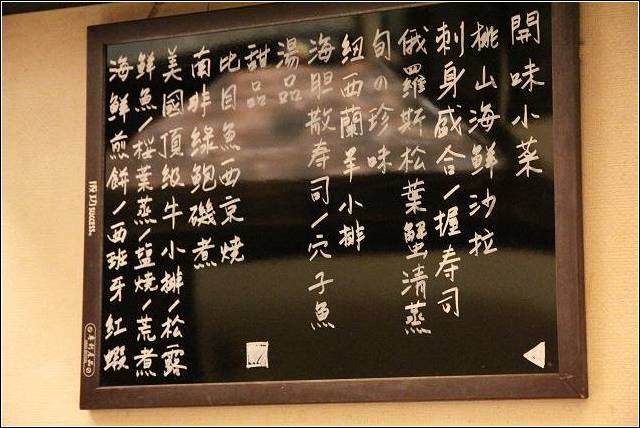 開味小菜
桃山海鮮沙拉
刺身盛合/握寿司
俄羅斯松葉蟹清蒸
旬の珍味
紐西蘭羊小排
海胆散寿司/穴子魚
湯品
甜品
比目魚/西京燒
南非綠鮑磯煮
美國頂級牛小排/松露
鮮魚/桜葉蒸/塩燒/荒煮
海鮮煎餅/西班牙紅蝦
成功 success.